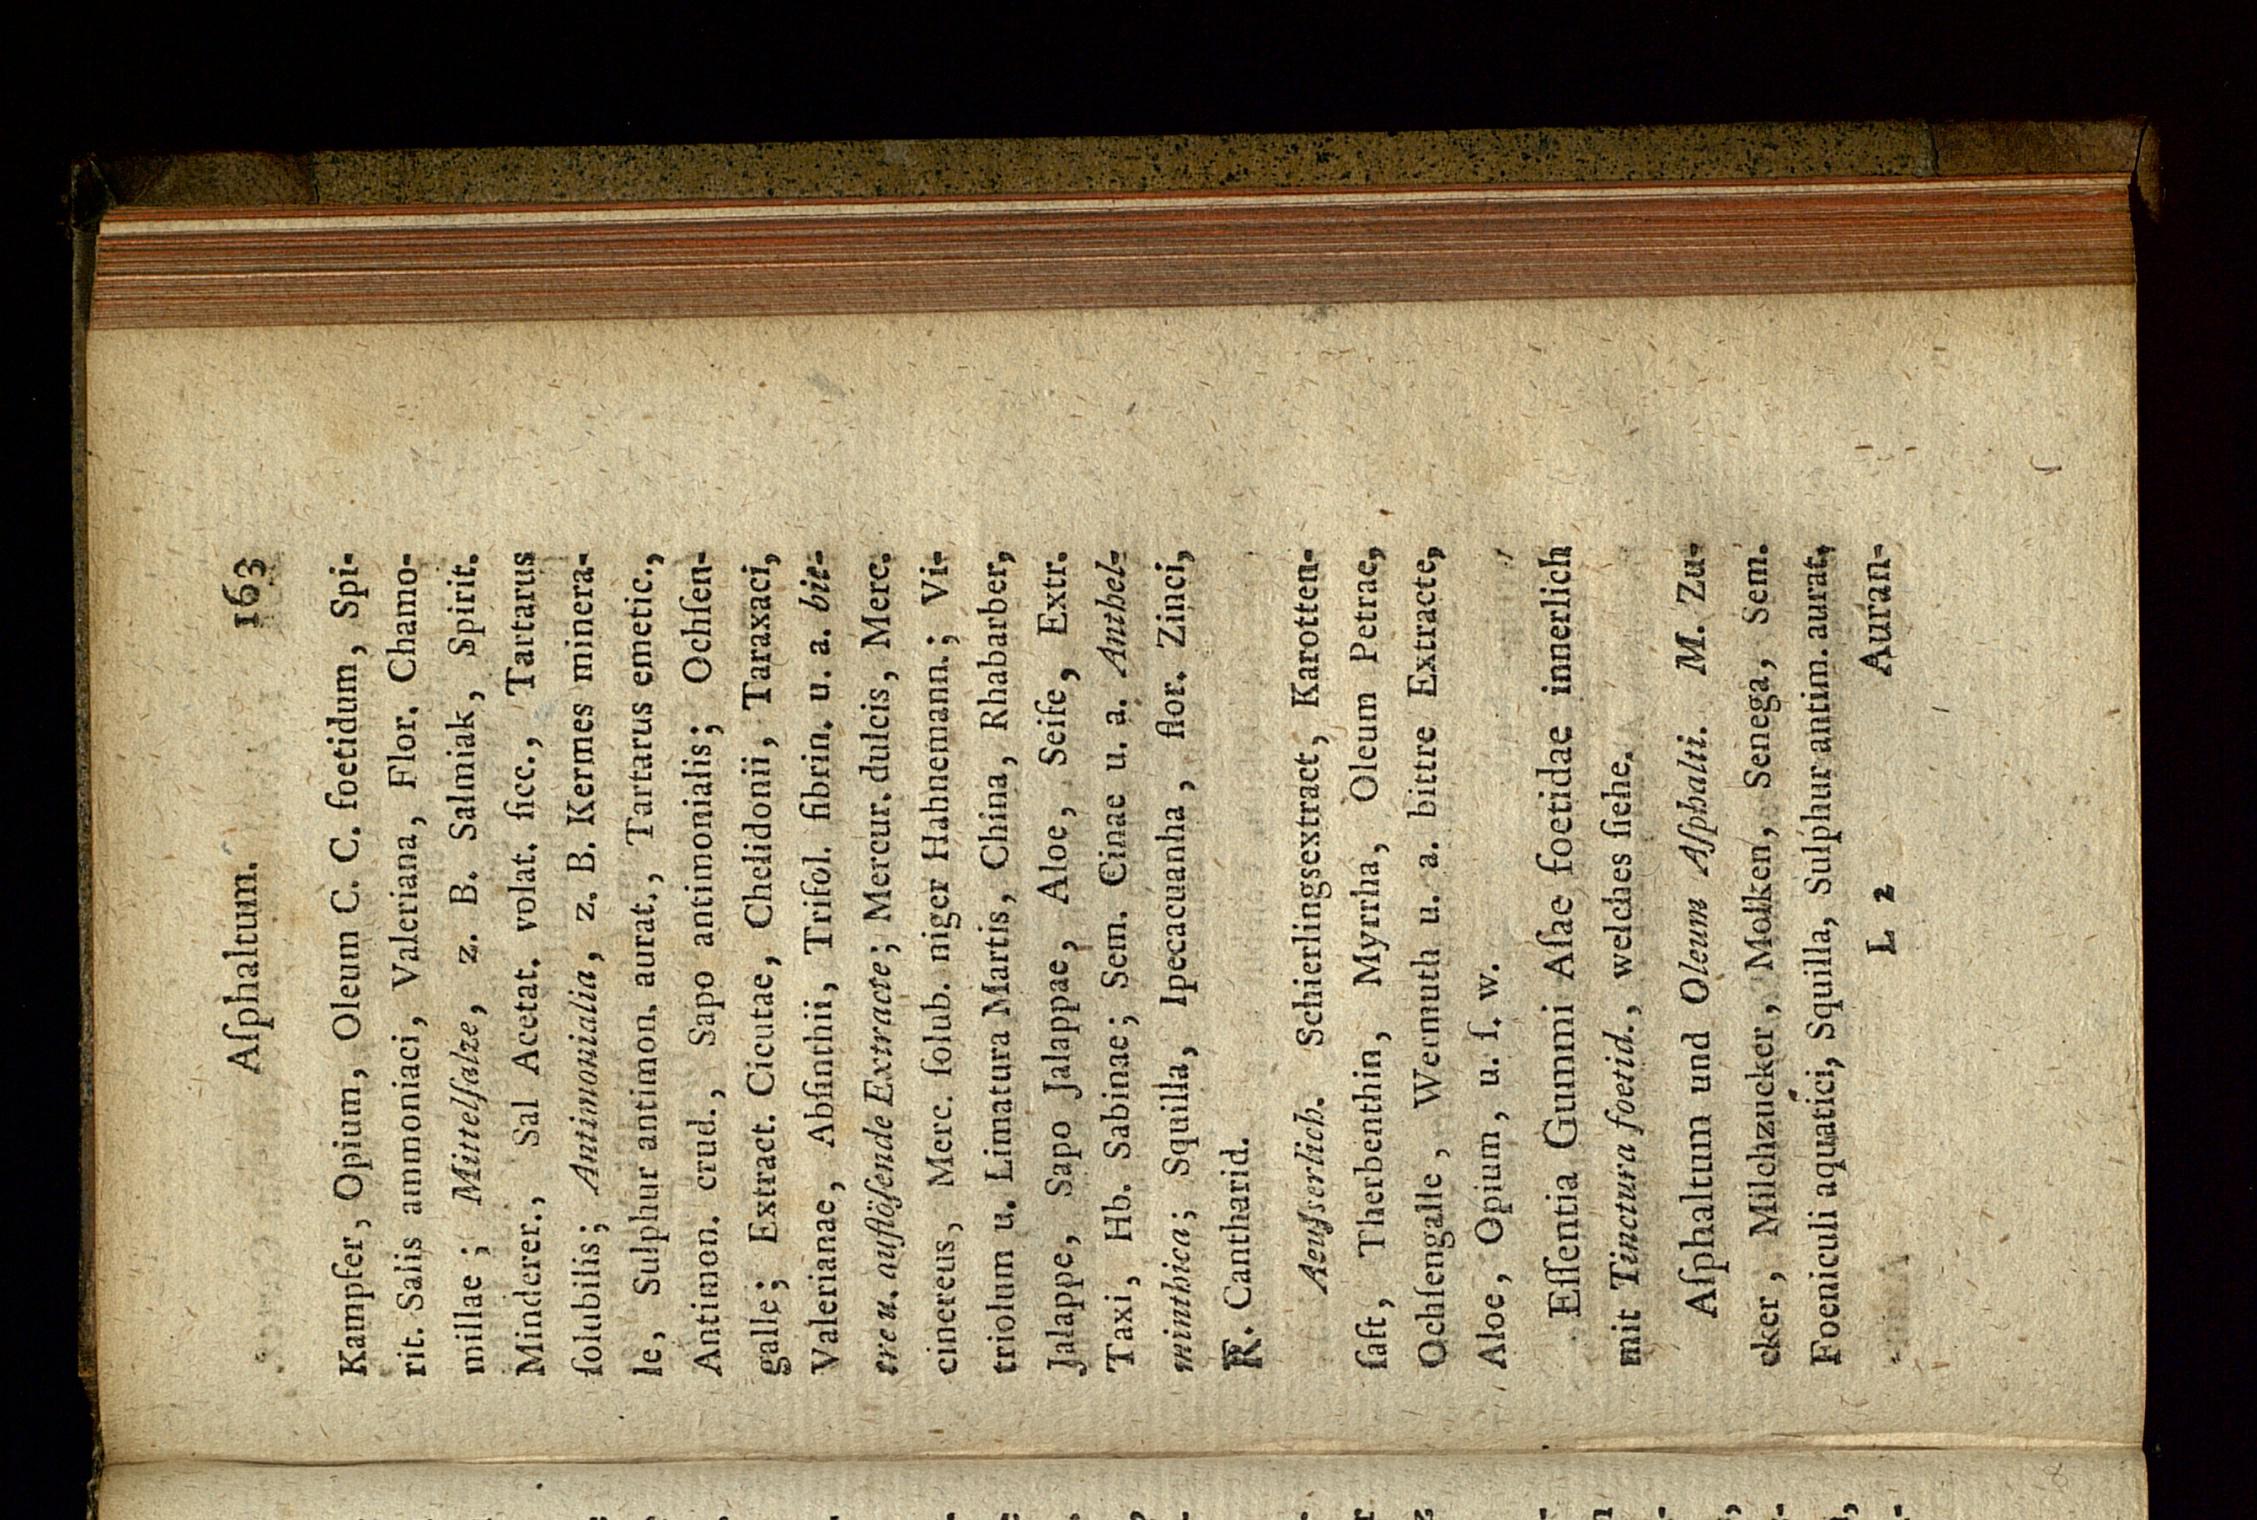 Aſphaltum. 163
Kampfer, Opium, Oleum C. C. foetidum, Spi-
rit. Salis ammoniaci, Valeriana, Flor. Chamo-
millae; Mittelſalze, z. B. Salmiak, Spirit.
Minderer., Sal Acetat. volat. ſicc., Tartarus
ſolubilis; Antimonialia, z. B. Kermes minera-
le, Sulphur antimon. aurat., Tartarus emetic.,
Antimon. crud., Sapo antimonialis; Ochſen-
galle; Extract. Cicutae, Chelidonii, Taraxaci,
Valerianae, Abſinthii, Trifol. fibrin. u. a. bit-
tre u. auflöſende Extracte; Mercur. dulcis, Merc.
cinereus, Merc. ſolub. niger Hahnemann.; Vi-
triolum u. Limatura Martis, China, Rhabarber,
Jalappe, Sapo Jalappae, Aloe, Seife, Extr.
Taxi, Hb. Sabinae; Sem. Cinae u. a. Anthel-
minthica; Squilla, Ipecacuanha, flor. Zinci,
R. Cantharid.
Aeuſserlich. Schierlingsextract, Karotten-
ſaft, Therbenthin, Myrrha, Oleum Petrae,
Ochſengalle, Wermuth u. a. bittre Extracte,
Aloe, Opium, u. ſ. w.
Eſſentia Gummi Aſae foetidae innerlich
mit Tinctura foetid., welches ſiehe.
Aſphaltum und Oleum Aſphalti. M. Zu-
cker, Milchzucker, Molken, Senega, Sem.
Foeniculi aquatici, Squilla, Sulphur antim. aurat.
L 2 Auran-